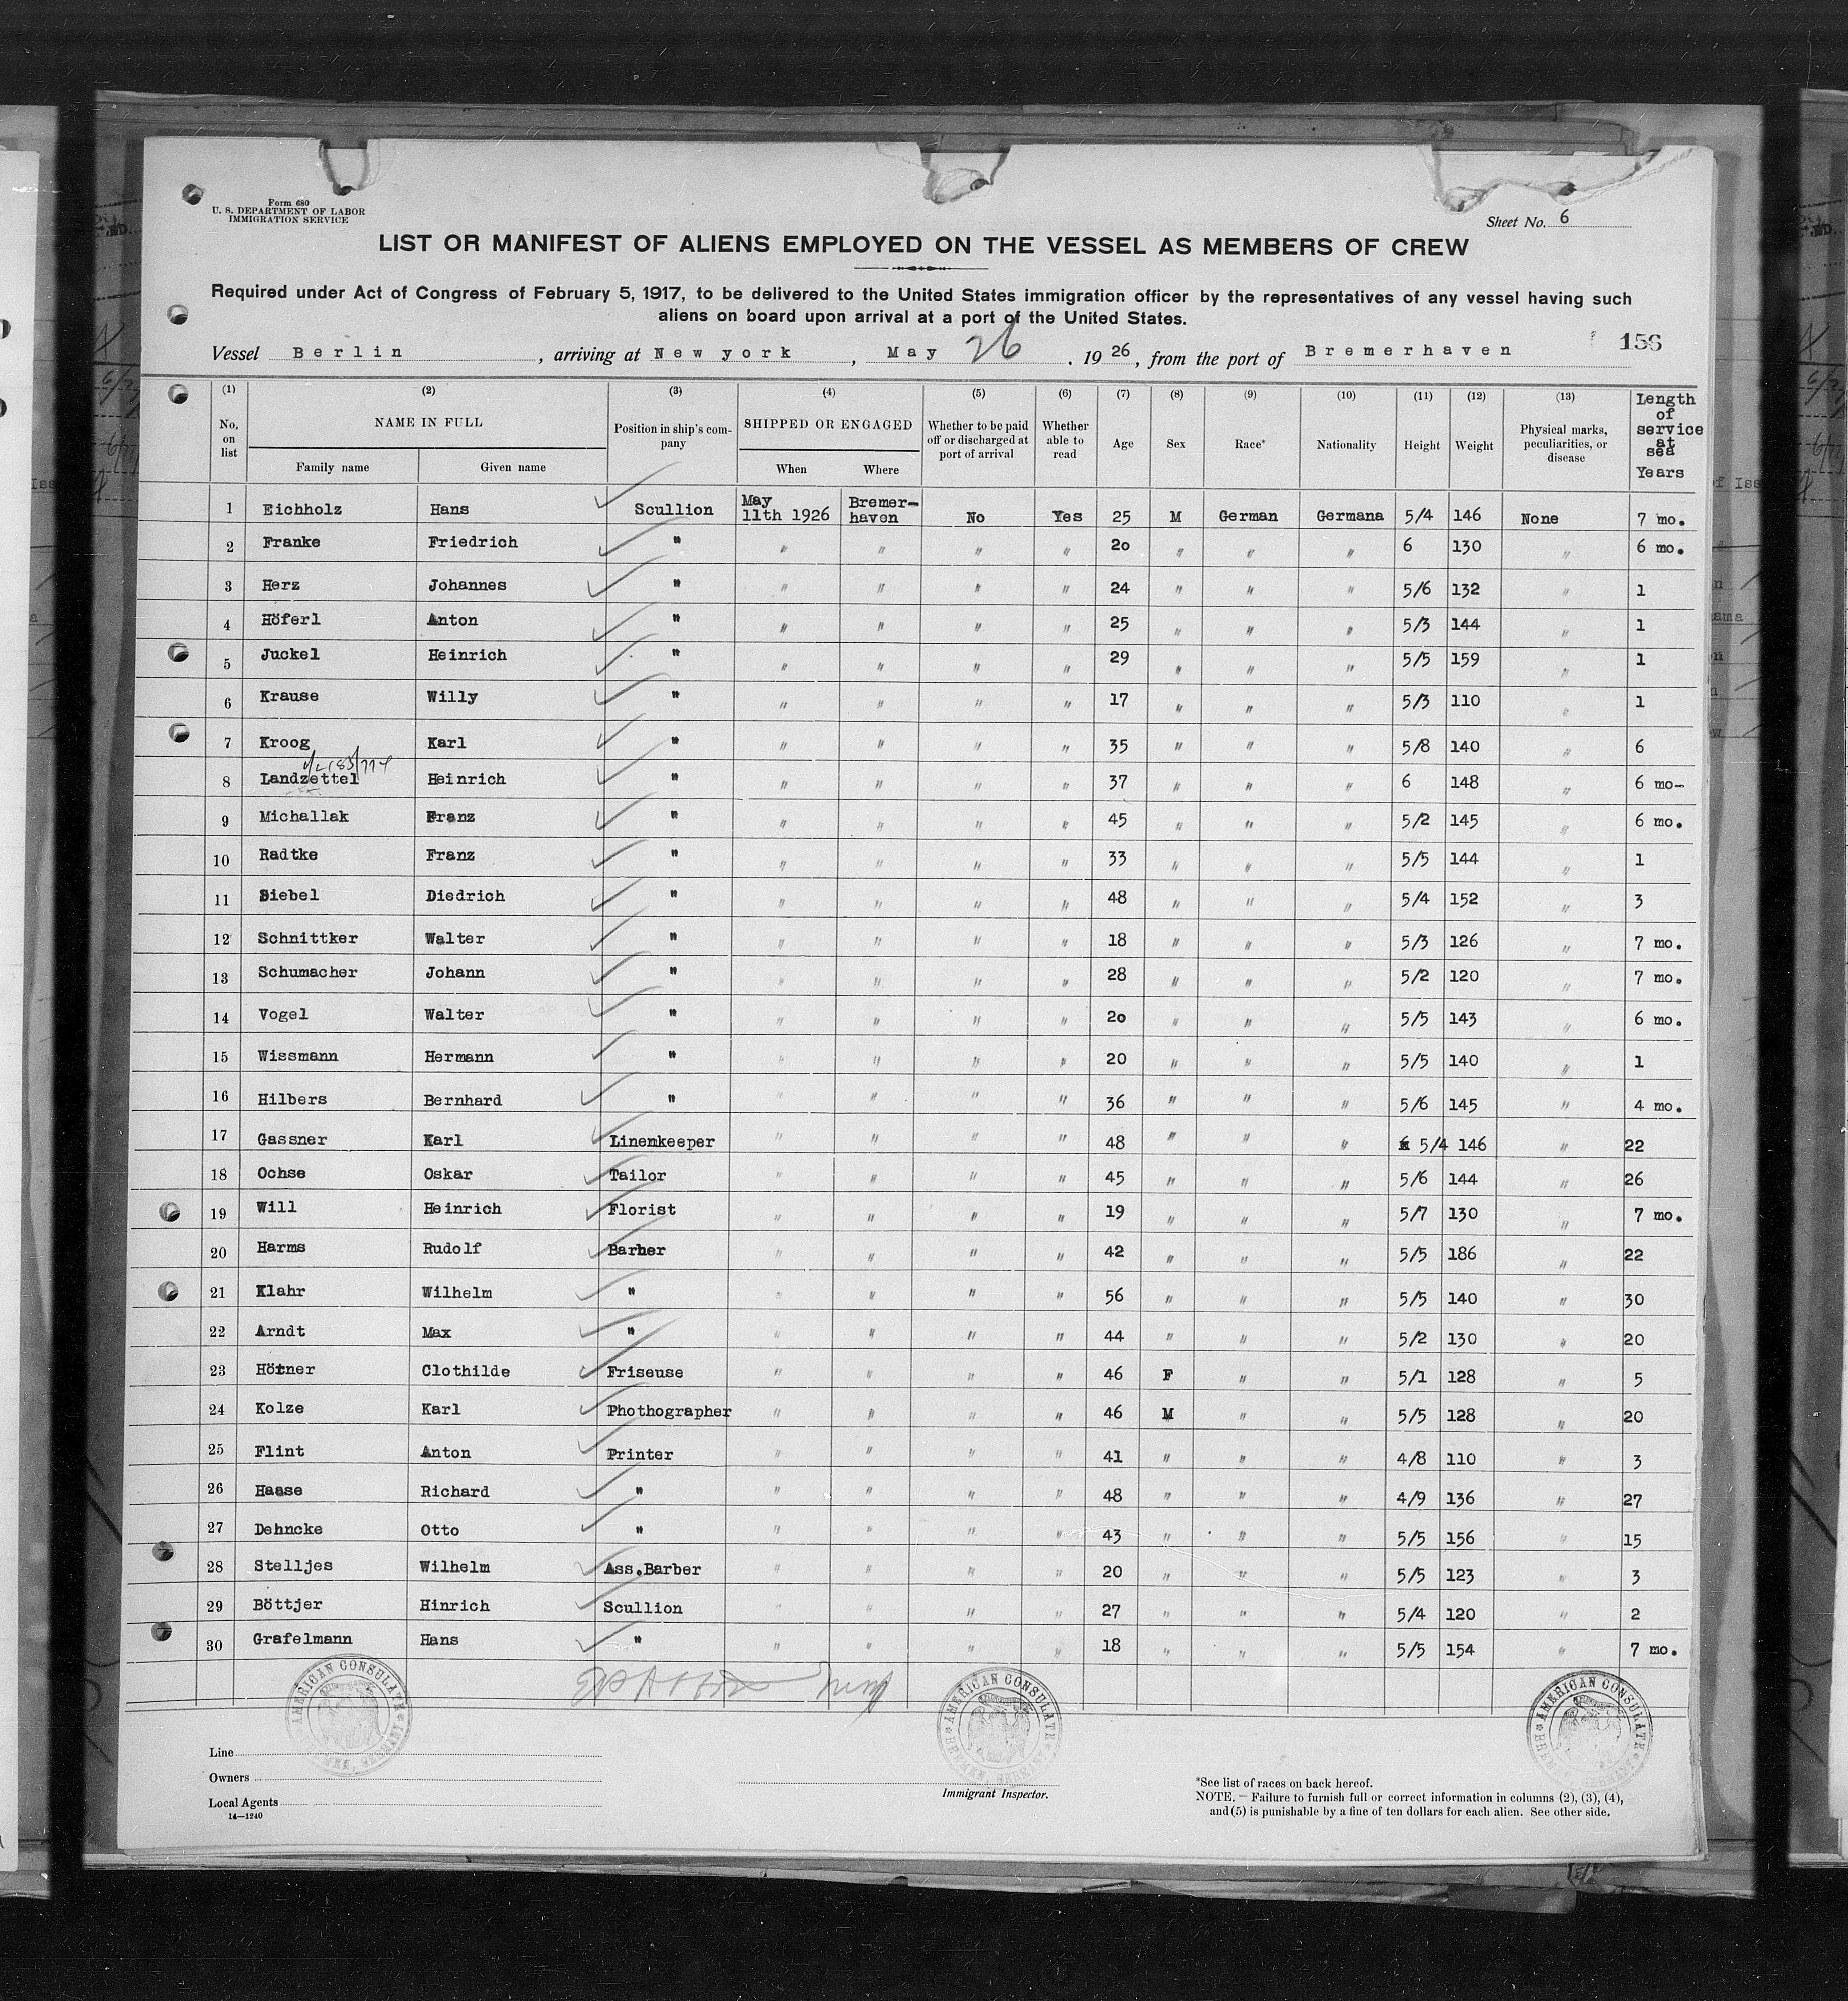 Form 680
U. S. DEPARTMENT OF LABOR
IMMIGRATION SERVICE
Sheet No. 6
LIST OR MANIFEST OF ALIENS EMPLOYED ON THE VESSEL AS MEMBERS OF CREW
Required under Act of Congress of February 5, 1917, to be delivered to the United States immigration officer by the representatives of any vessel having such
aliens on board upon arrival at a port of the United States.
Vessel Berlin, arriving at New york, May 26, 1926, from the port of Bremerhaven 156
(1) (2) (3) (4) (5) (6) (7) (8) (9) (10) (11) (12) (13)
No. on list NAME IN FULL Family name Given name Position in ship's company SHIPPED OR ENGAGED When Where Whether to be paid off or discharged at port of arrival Whether able to read Age Sex Race* Nationality Height Weight Physical marks, peculiarities, or disease Length of service at sea Years
1 Eichholz Hans Scullion May 11th 1926 Bremer-haven No Yes 25 M German Germana 5/4 146 None 7 mo.
2 Franke Friedrich " " " " " 20 " " " 6 130 " 6 mo.
3 Herz Johannes " " " " " 24 " " " 5/6 132 " 1
4 Höferl Anton " " " " " 25 " " " 5/3 144 " 1
5 Juckel Heinrich " " " " " 29 " " " 5/5 159 " 1
6 Krause Willy " " " " " 17 " " " 5/3 110 " 1
7 Kroog Karl " " " " " 35 " " " 5/8 140 " 6
8 Landzettel Heinrich " " " " " 37 " " " 6 148 " 6 mo-
9 Michallak Franz " " " " " 45 " " " 5/2 145 " 6 mo.
10 Radtke Franz " " " " " 33 " " " 5/5 144 " 1
11 Siebel Diedrich " " " " " 48 " " " 5/4 152 " 3
12 Schnittker Walter " " " " " 18 " " " 5/3 126 " 7 mo.
13 Schumacher Johann " " " " " 28 " " " 5/2 120 " 7 mo.
14 Vogel Walter " " " " " 20 " " " 5/5 143 " 6 mo.
15 Wissmann Hermann " " " " " 20 " " " 5/5 140 " 1
16 Hilbers Bernhard " " " " " 36 " " " 5/6 145 " 4 mo.
17 Gassner Karl Linenkeeper " " " " 48 " " " 5/4 146 " 22
18 Ochse Oskar Tailor " " " " 45 " " " 5/6 144 " 26
19 Will Heinrich Florist " " " " 19 " " " 5/7 130 " 7 mo.
20 Harms Rudolf Barber " " " " 42 " " " 5/5 186 " 22
21 Klahr Wilhelm " " " " " 56 " " " 5/5 140 " 30
22 Arndt Max " " " " " 44 " " " 5/2 130 " 20
23 Hötner Clothilde Friseuse " " " " 46 F " " 5/1 128 " 5
24 Kolze Karl Phothographer " " " " 46 M " " 5/5 128 " 20
25 Flint Anton Printer " " " " 41 " " " 4/8 110 " 3
26 Haase Richard " " " " " 48 " " " 4/9 136 " 27
27 Dehncke Otto " " " " " 43 " " " 5/5 156 " 15
28 Stelljes Wilhelm Ass.Barber " " " " 20 " " " 5/5 123 " 3
29 Böttjer Hinrich Scullion " " " " 27 " " " 5/4 120 " 2
30 Grafelmann Hans " " " " " 18 " " " 5/5 154 " 7 mo.
AMERICAN CONSULATE BREMEN, GERMANY
AMERICAN CONSULATE BREMEN, GERMANY
AMERICAN CONSULATE BREMEN, GERMANY
Line
Owners
Local Agents
14—1240
Immigrant Inspector.
*See list of races on back hereof.
NOTE. — Failure to furnish full or correct information in columns (2), (3), (4),
and (5) is punishable by a fine of ten dollars for each alien. See other side.